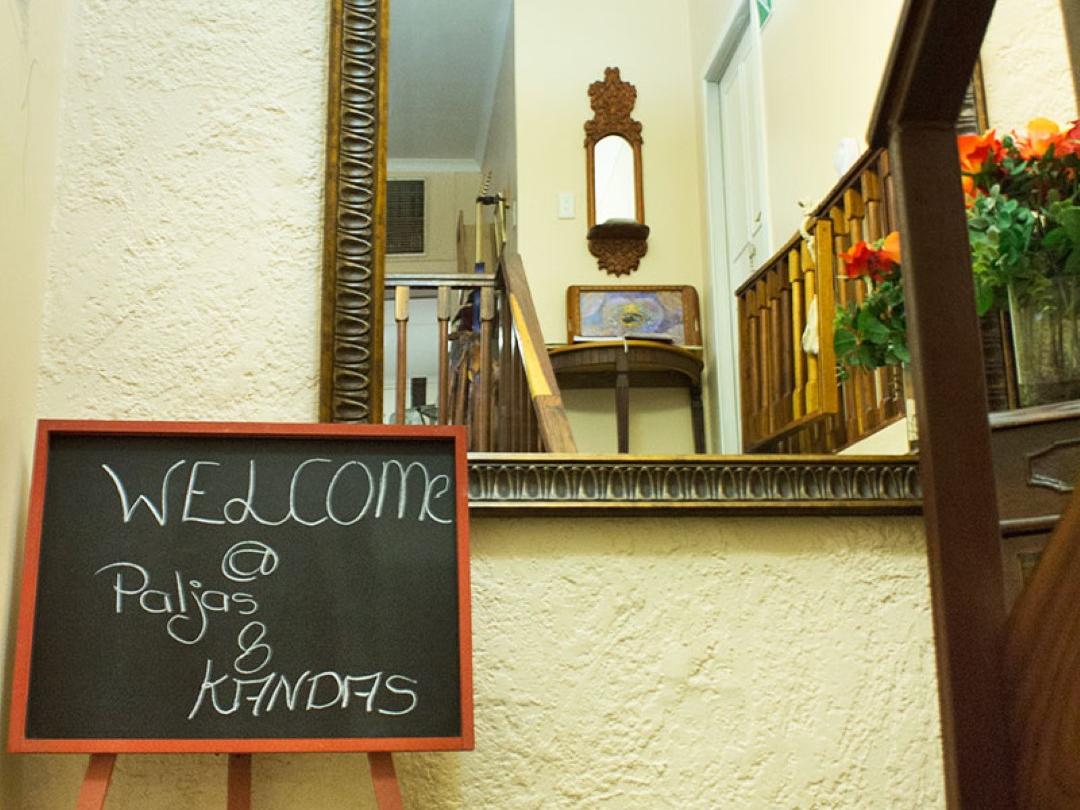 WELCOME
@
Paljas
&
KANDAS